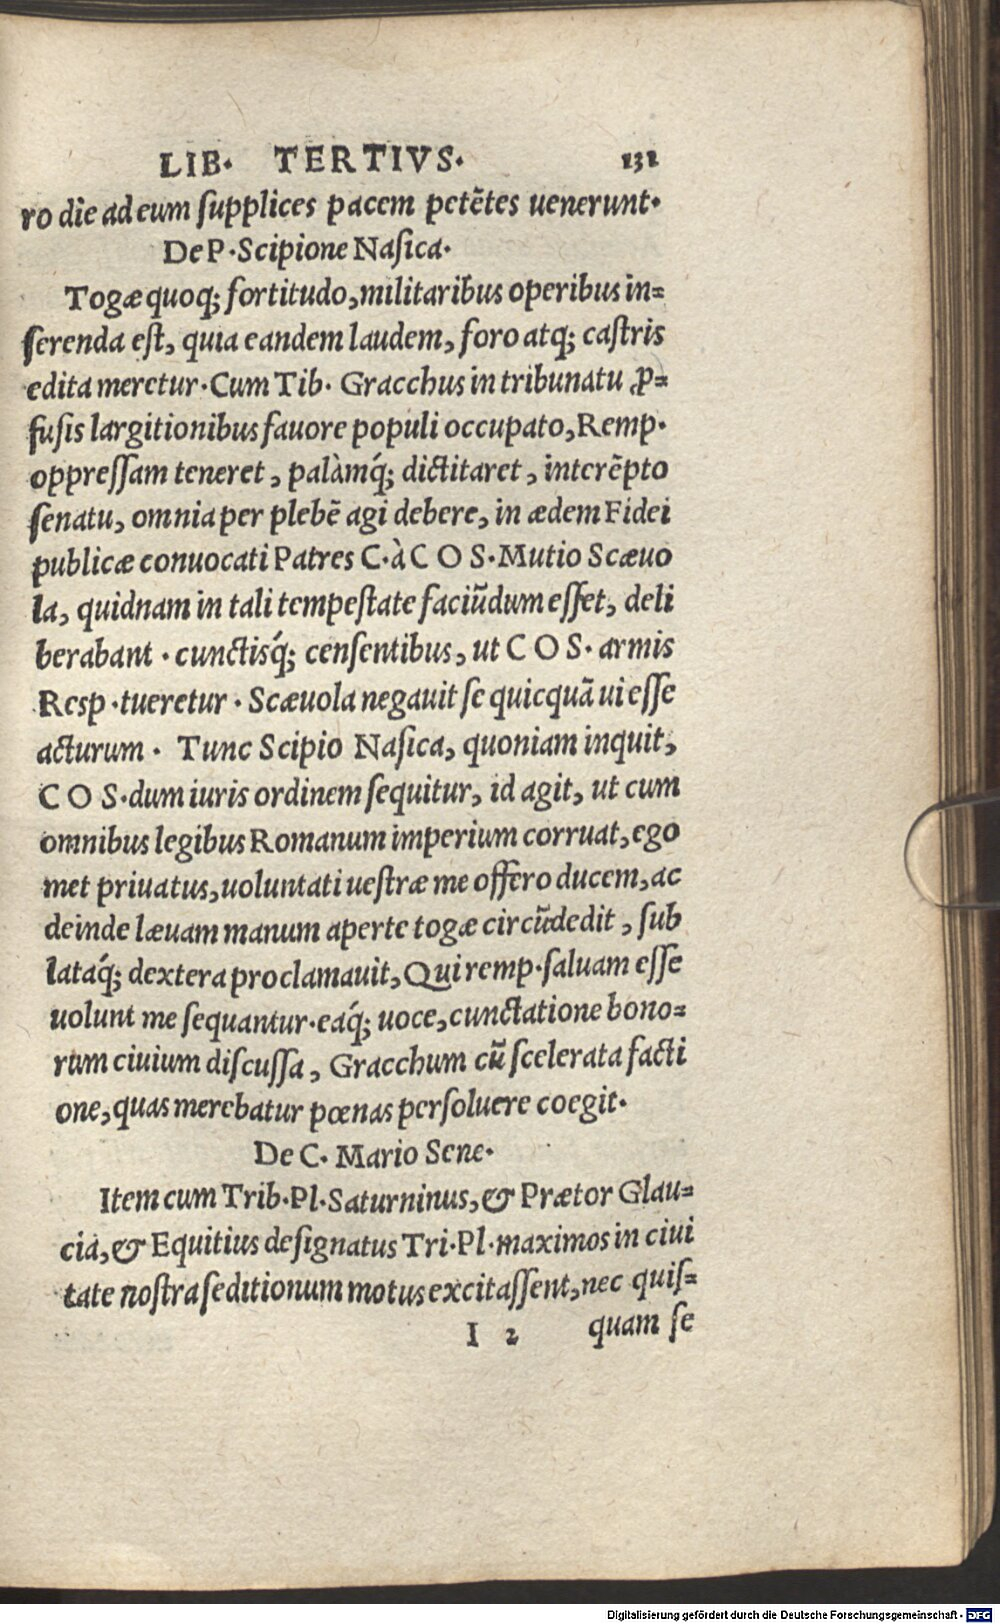 LIB. TERTIVS. 131
ro die ad eum ſupplices pacem petētes uenerunt.
De P. Scipione Naſica.
Togæ quoq; fortitudo, militaribus operibus in=
ſerenda eſt, quia eandem laudem, foro atq; caſtris
edita meretur. Cum Tib. Gracchus in tribunatu ꝓ=
fuſis largitionibus fauore populi occupato, Remp.
oppreſſam teneret, palàmq́; dictitaret, interēpto
ſenatu, omnia per plebē agi debere, in ædem Fidei
publicæ conuocati Patres C. à C O S. Mutio Scæuo
la, quidnam in tali tempeſtate faciūdum eſſet, deli
berabant. cunctisq́; cenſentibus, ut C O S. armis
Resp. tueretur. Scæuola negauit ſe quicquā ui eſſe
acturum. Tunc Scipio Naſica, quoniam inquit,
C O S. dum iuris ordinem ſequitur, id agit, ut cum
omnibus legibus Romanum imperium corruat, ego
met priuatus, uoluntati ueſtræ me offero ducem, ac
deinde læuam manum aperte togæ circūdedit, ſub
lataq́; dextera proclamauit, Qui remp. ſaluam eſſe
uolunt me ſequantur. eaq́; uoce, cunctatione bono=
rum ciuium diſcuſſa, Gracchum cū ſcelerata facti
one, quas merebatur pœnas perſoluere coegit.
De C. Mario Sene.
Item cum Trib. Pl. Saturninus, & Prætor Glau=
cia, & Equitius deſignatus Tri. Pl. maximos in ciui
tate noſtra ſeditionum motus excitaſſent, nec quiſ=
I 2 quam ſe
Digitalisierung gefördert durch die Deutsche Forschungsgemeinschaft - DFG